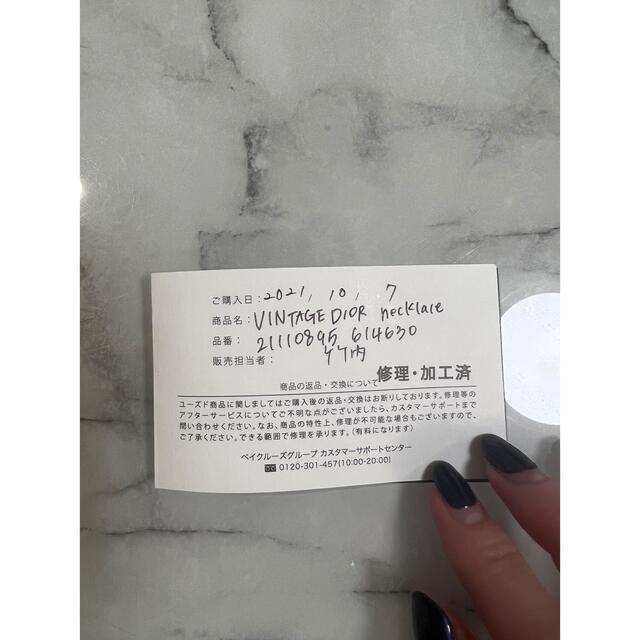 ご購入日：2021, 10, 7
商品名：VINTAGE DIOR necklace
品番： 21110895 614630
販売担当者： 竹内
商品の返品・交換について 修理・加工済
ユーズド商品に関しましてはご購入後の返品・交換はお断りしております。修理等の
アフターサービスについてご不明な点がございましたら、カスタマーサポートまで
問い合わせください。なお、商品の特性上、修理が不可能な場合もございますので、
ご了承ください。できる範囲で修理を承ります。（有料になります）
ベイクルーズグループ カスタマーサポートセンター
0120-301-457(10:00-20:00)